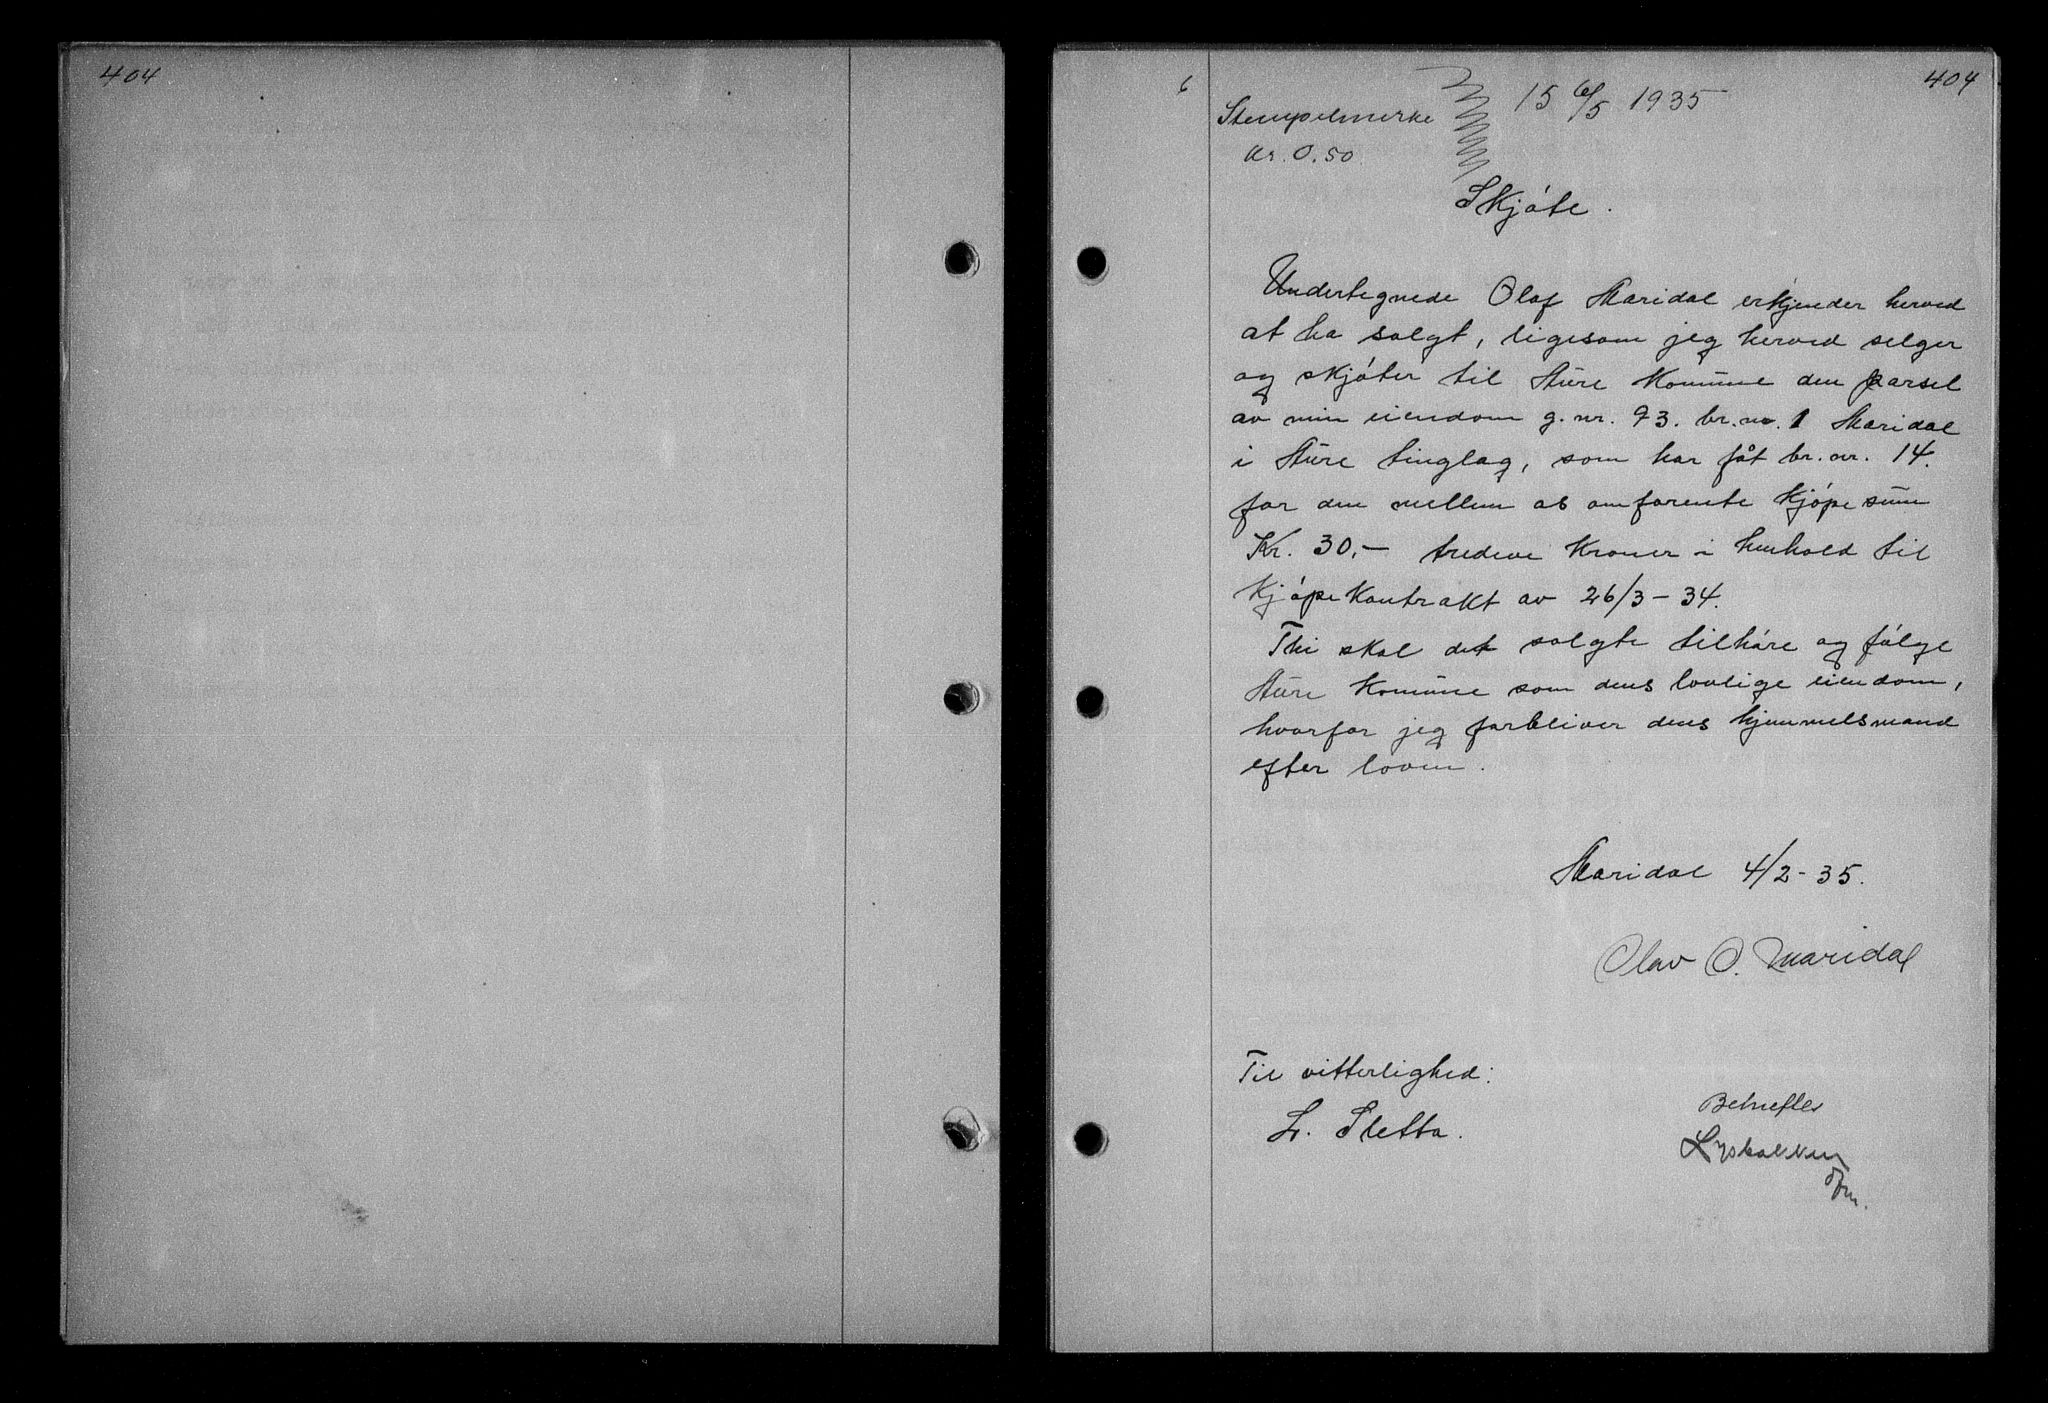 404
404
6
15 6/5 1935
Stempelmerke
kr. 0.50
Skjøte.
Undertegnede Olaf Maridal erkjender herved
at ha solgt, ligesom jeg herved selger
og skjøter til Aure Kommune den parsel
av min eiendom g.nr. 93. br.nr. 1 Maridal
i Aure tinglag, som har fåt br.nr. 14.
for den mellem os omforente kjøpesum
Kr. 30,- tredeve Kroner i henhold til
kjøpekontrakt av 26/3-34.
Thi skal det solgte tilhøre og følge
Aure Kommune som dens lovlige eiendom,
hvorfor jeg forbliver dens hjemmelsmand
efter loven.
Maridal 4/2-35.
Olav O. Maridal
Til vitterlighed:
L. Sletta.
Bekreftes
Lysbakken